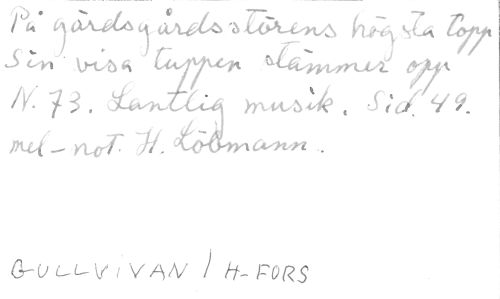 På gärdsgårdsstörens högsta topp
Sin visa tuppen stämmer opp
N. 73. Lantlig musik. Sid. 49.
mel-not. H. Löbmann.
GULLVIVAN / H-FORS